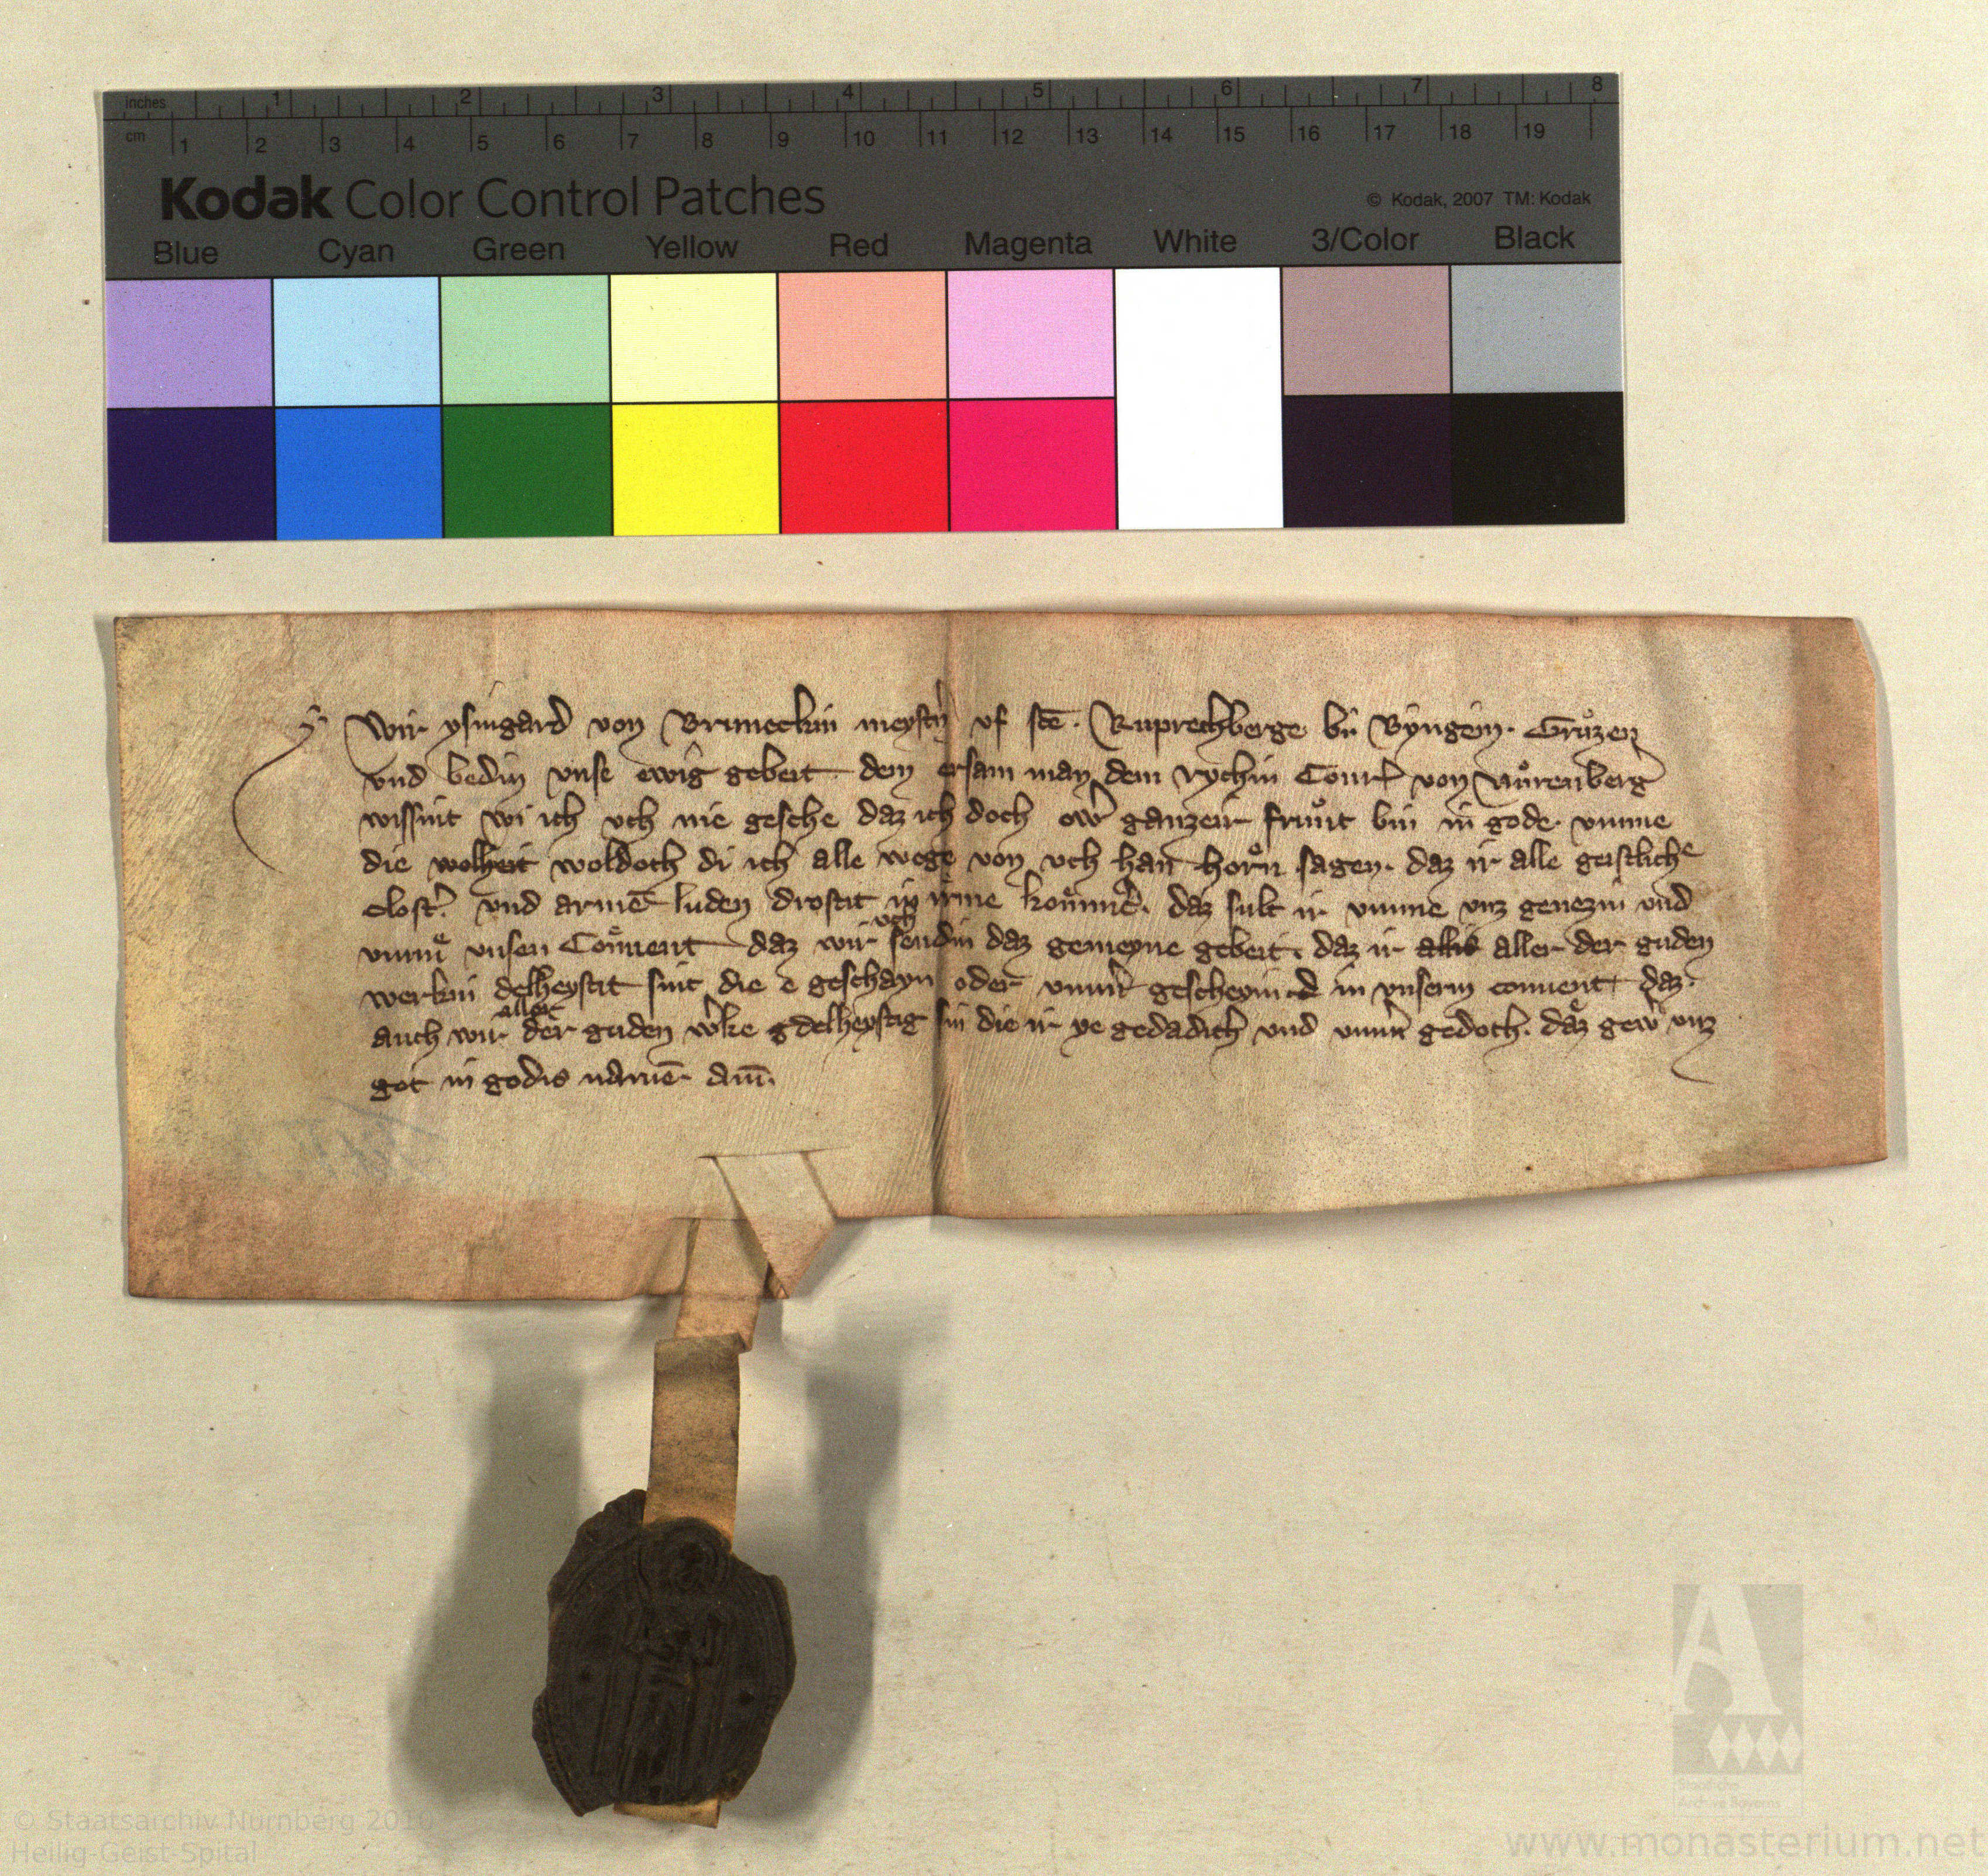 inches 1 2 3 4 5 6 7 8
cm 1 2 3 4 5 6 7 8 9 10 11 12 13 14 15 16 17 18 19
Kodak Color Control Patches
© Kodak, 2007 TM: Kodak
Blue Cyan Green Yellow Red Magenta White 3/Color Black
Wir ysingard von Bruneckin meystĩn vf scē. Ruprechberge bii Byngein. Gruͦzen
vnd bedin vnse ewig gebeit dem ersam man dem rychin Conr̄ von Nuͦrenberg
wissint wi ich vch nie gesche daz ich doch ow̄ ganzeir fruͦnt bin in gode vmme
die wolheit woldoch di ich alle wege von vch han horͦn sagen. daz ir alle geistliche
clost̄. vnd armē luden drostit in irme koͤmm̄. daz sult ir vmme vnz genezin vnd
vmme vnsen Conͦuent daz wir vch sendin daz gemeyne gebeit. daz ir aller der guden
werkin delheystit sint die e geschayn oder vmm̄ gescheyn in vnserm conuent daz.
auch wir aller der guden w̄ke delheystig sin die ir ye gedadich vnd vmm̄ gedoch. daz gew̄ vnz
got in godis namē am̄.
© Staatsarchiv Nürnberg 2010
Heilig-Geist-Spital
www.monasterium.net